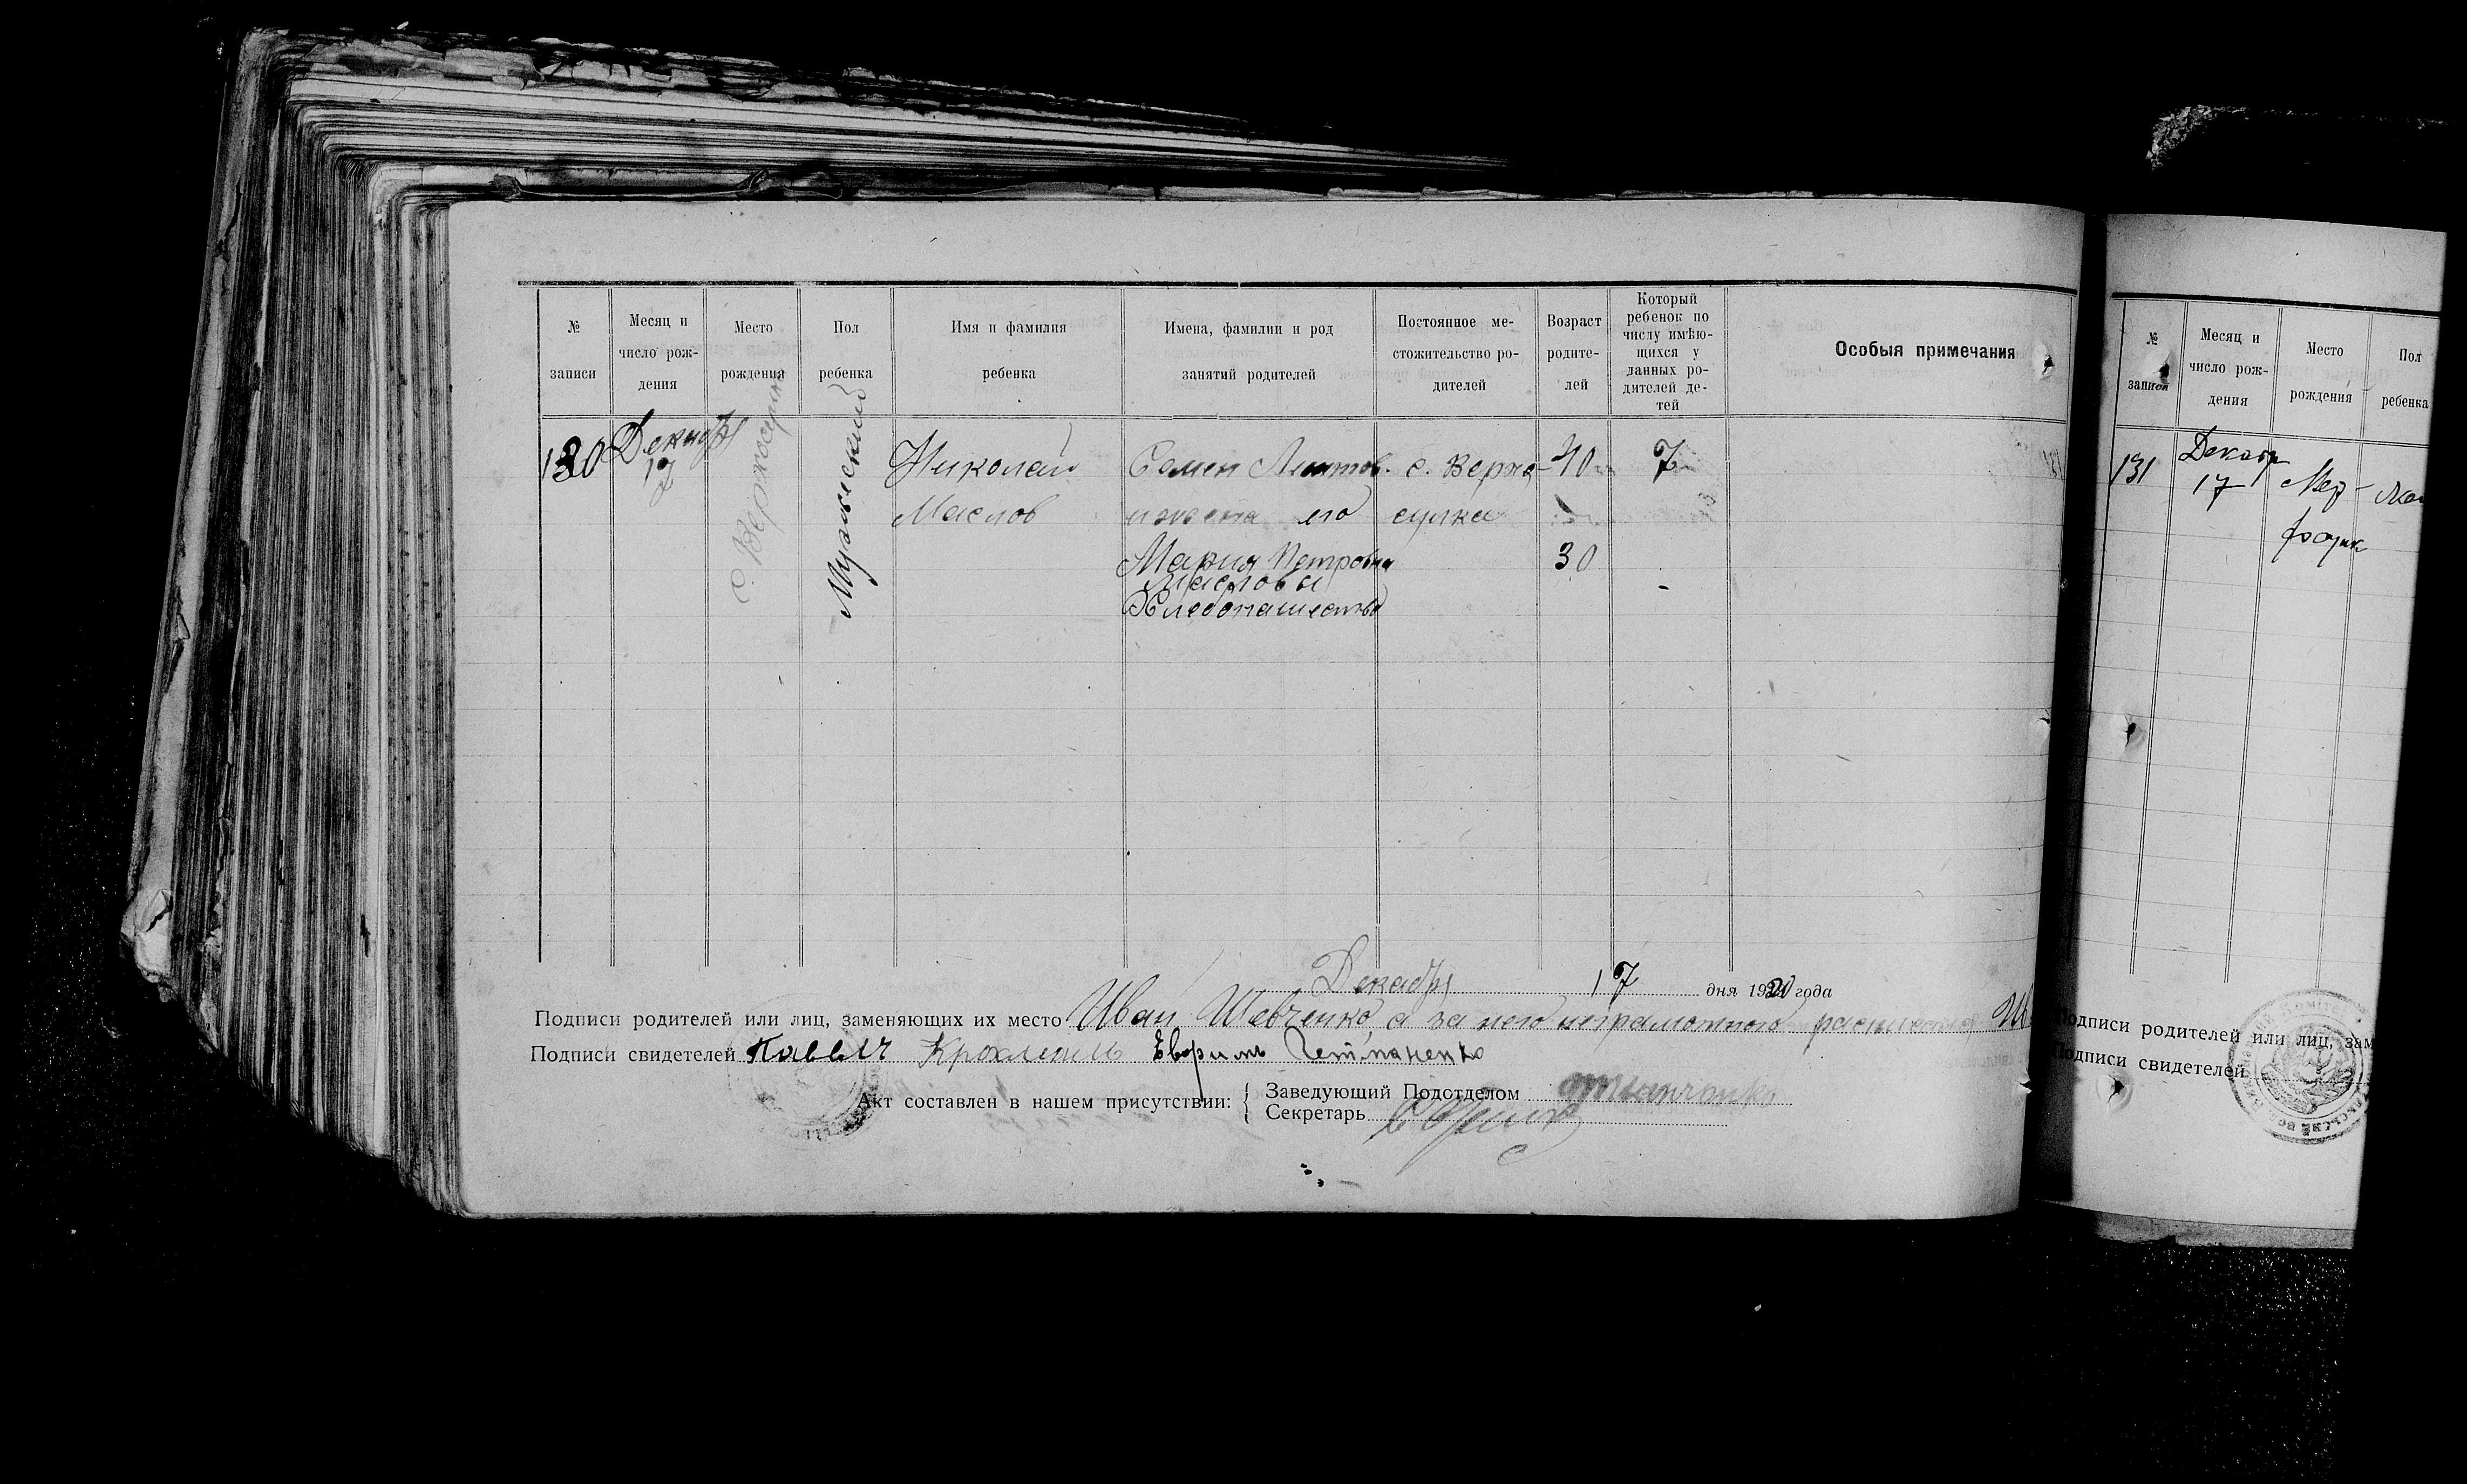 № записи
Месяц и число рождения
Место рождения
Пол ребенка
Имя и фамилия ребенка
Имена, фамилии и род занятий родителей
Постоянное местожительство родителей
Возраст родителей
Который ребенок по числу имѣющихся у данных родителей детей
Особыя примечания
130
Декабр
с. Верхосулка
Мужеский
Николай
Маслов
Семен
и жена его
Мария Петровна
Масловы
Хлебопашество
с. Верхо-
сулка
40
30
7
Декабр 17 дня 1920 года
Подписи родителей или лиц, заменяющих их место Иван Шевченко, а за него неграмотного
Подписи свидетелей Павел Гетманенко
Акт составлен в нашем присутствии:
Заведующий Подотделом
Секретарь
№ записи
Месяц и число рождения
Место рождения
Пол ребенка
131
Декабр
17
Подписи родителей или лиц, зам
Подписи свидетелей